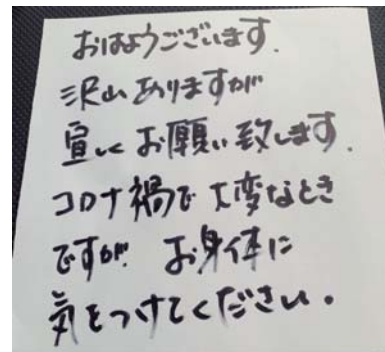 おはようございます.
沢山ありますが
宜しくお願い致します.
コロナ禍で大変なとき
ですが お身体に
気をつけてください。